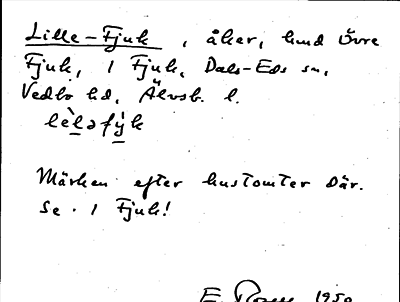 Lille-Fjuk, åker, hmd Övre
Fjuk, 1 Fjuk, Dals-Eds sn,
Vedbo hd, Älvsb. l.
lèləfỳk
Märken efter hustomter där.
Se 1 Fjuk!
E. 1950